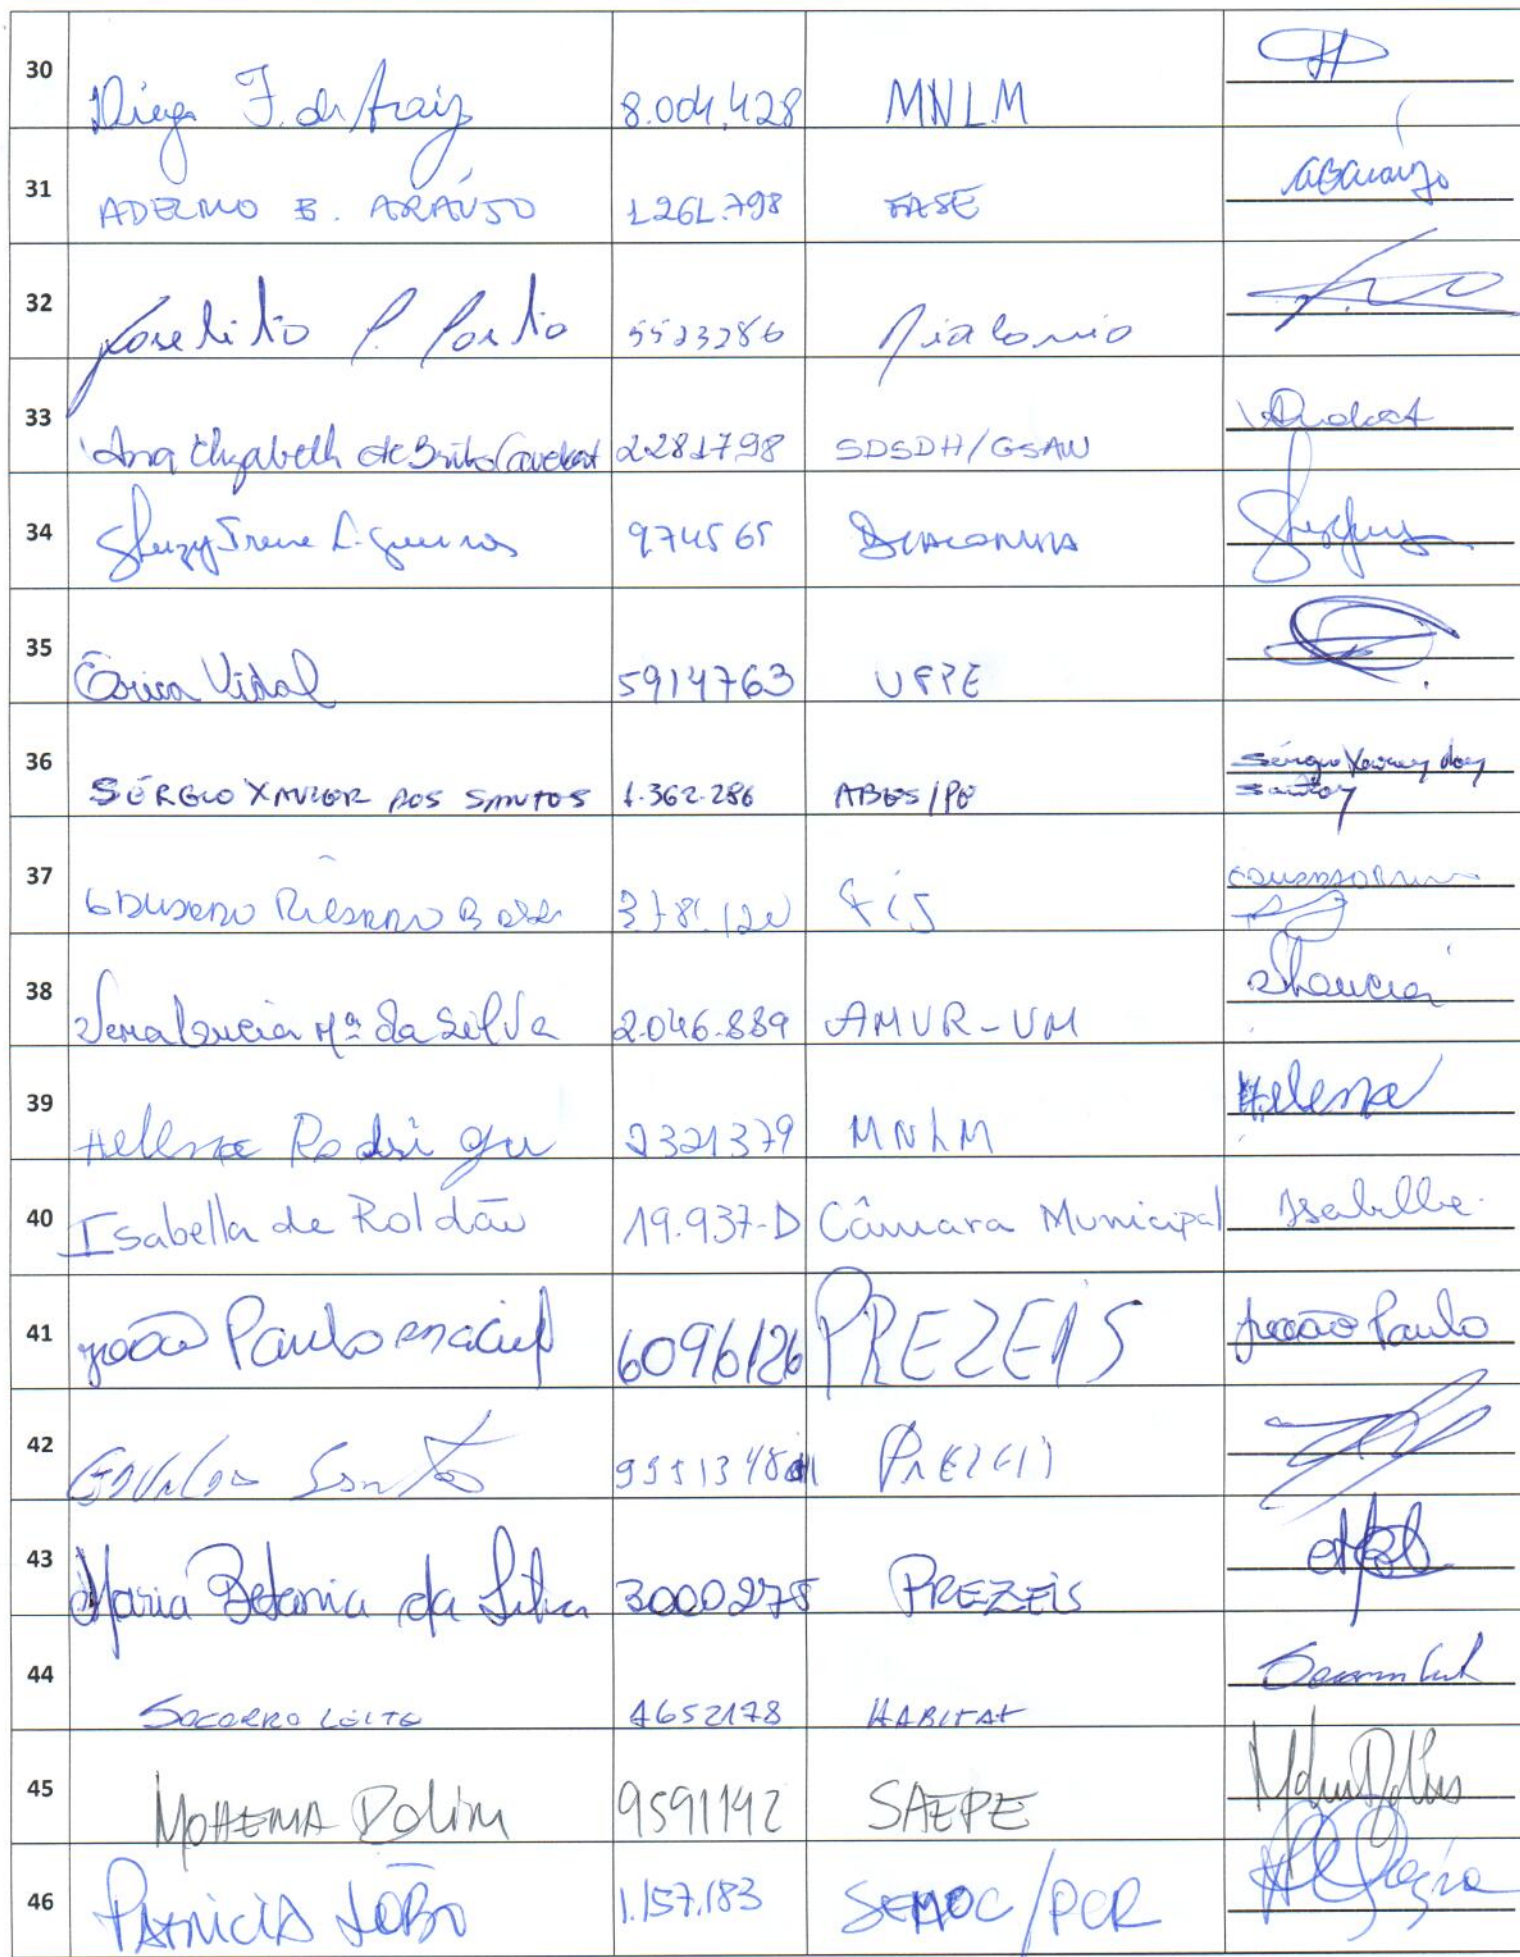 30 Diego F. de Araiz 8.004.428 MNLM
31 ADELMO B. ARAÚJO 1.261.798 FASE ABAraújo
32 Joselito P. Porto 5523286 Diaconia
33 Ana Elizabeth de Brito Cavalcant 2281798 SDSDH/GSAN
34 Irene 974565 DIACONIA
35 Érica Vidal 5914763 UFPE
36 SÉRGIO XAVIER DOS SANTOS 1.362.286 ABES/PE Sérgio Xavier dos
Santos
37
38 Vera Lucia Mª da Silva 2.046.889 AMVR-VM
39 Helena Rodrigu 2321379 MNLM Helena
40 Isabella de Roldão 19.937-D Câmara Municipal Isabella
41 João Paulo maciel 6096126 PREZEIS João Paulo
42 EDVALDO Santos PREZEIS
43 Maria Betania da Silva 3000278 PREZEIS
44 SOCORRO LEITE 4652178 HABITAT
45 MOHEMA ROLIM 9591142 SAEPE
46 PATRICIA LOBO 1.157.183 SEMOC/PCR